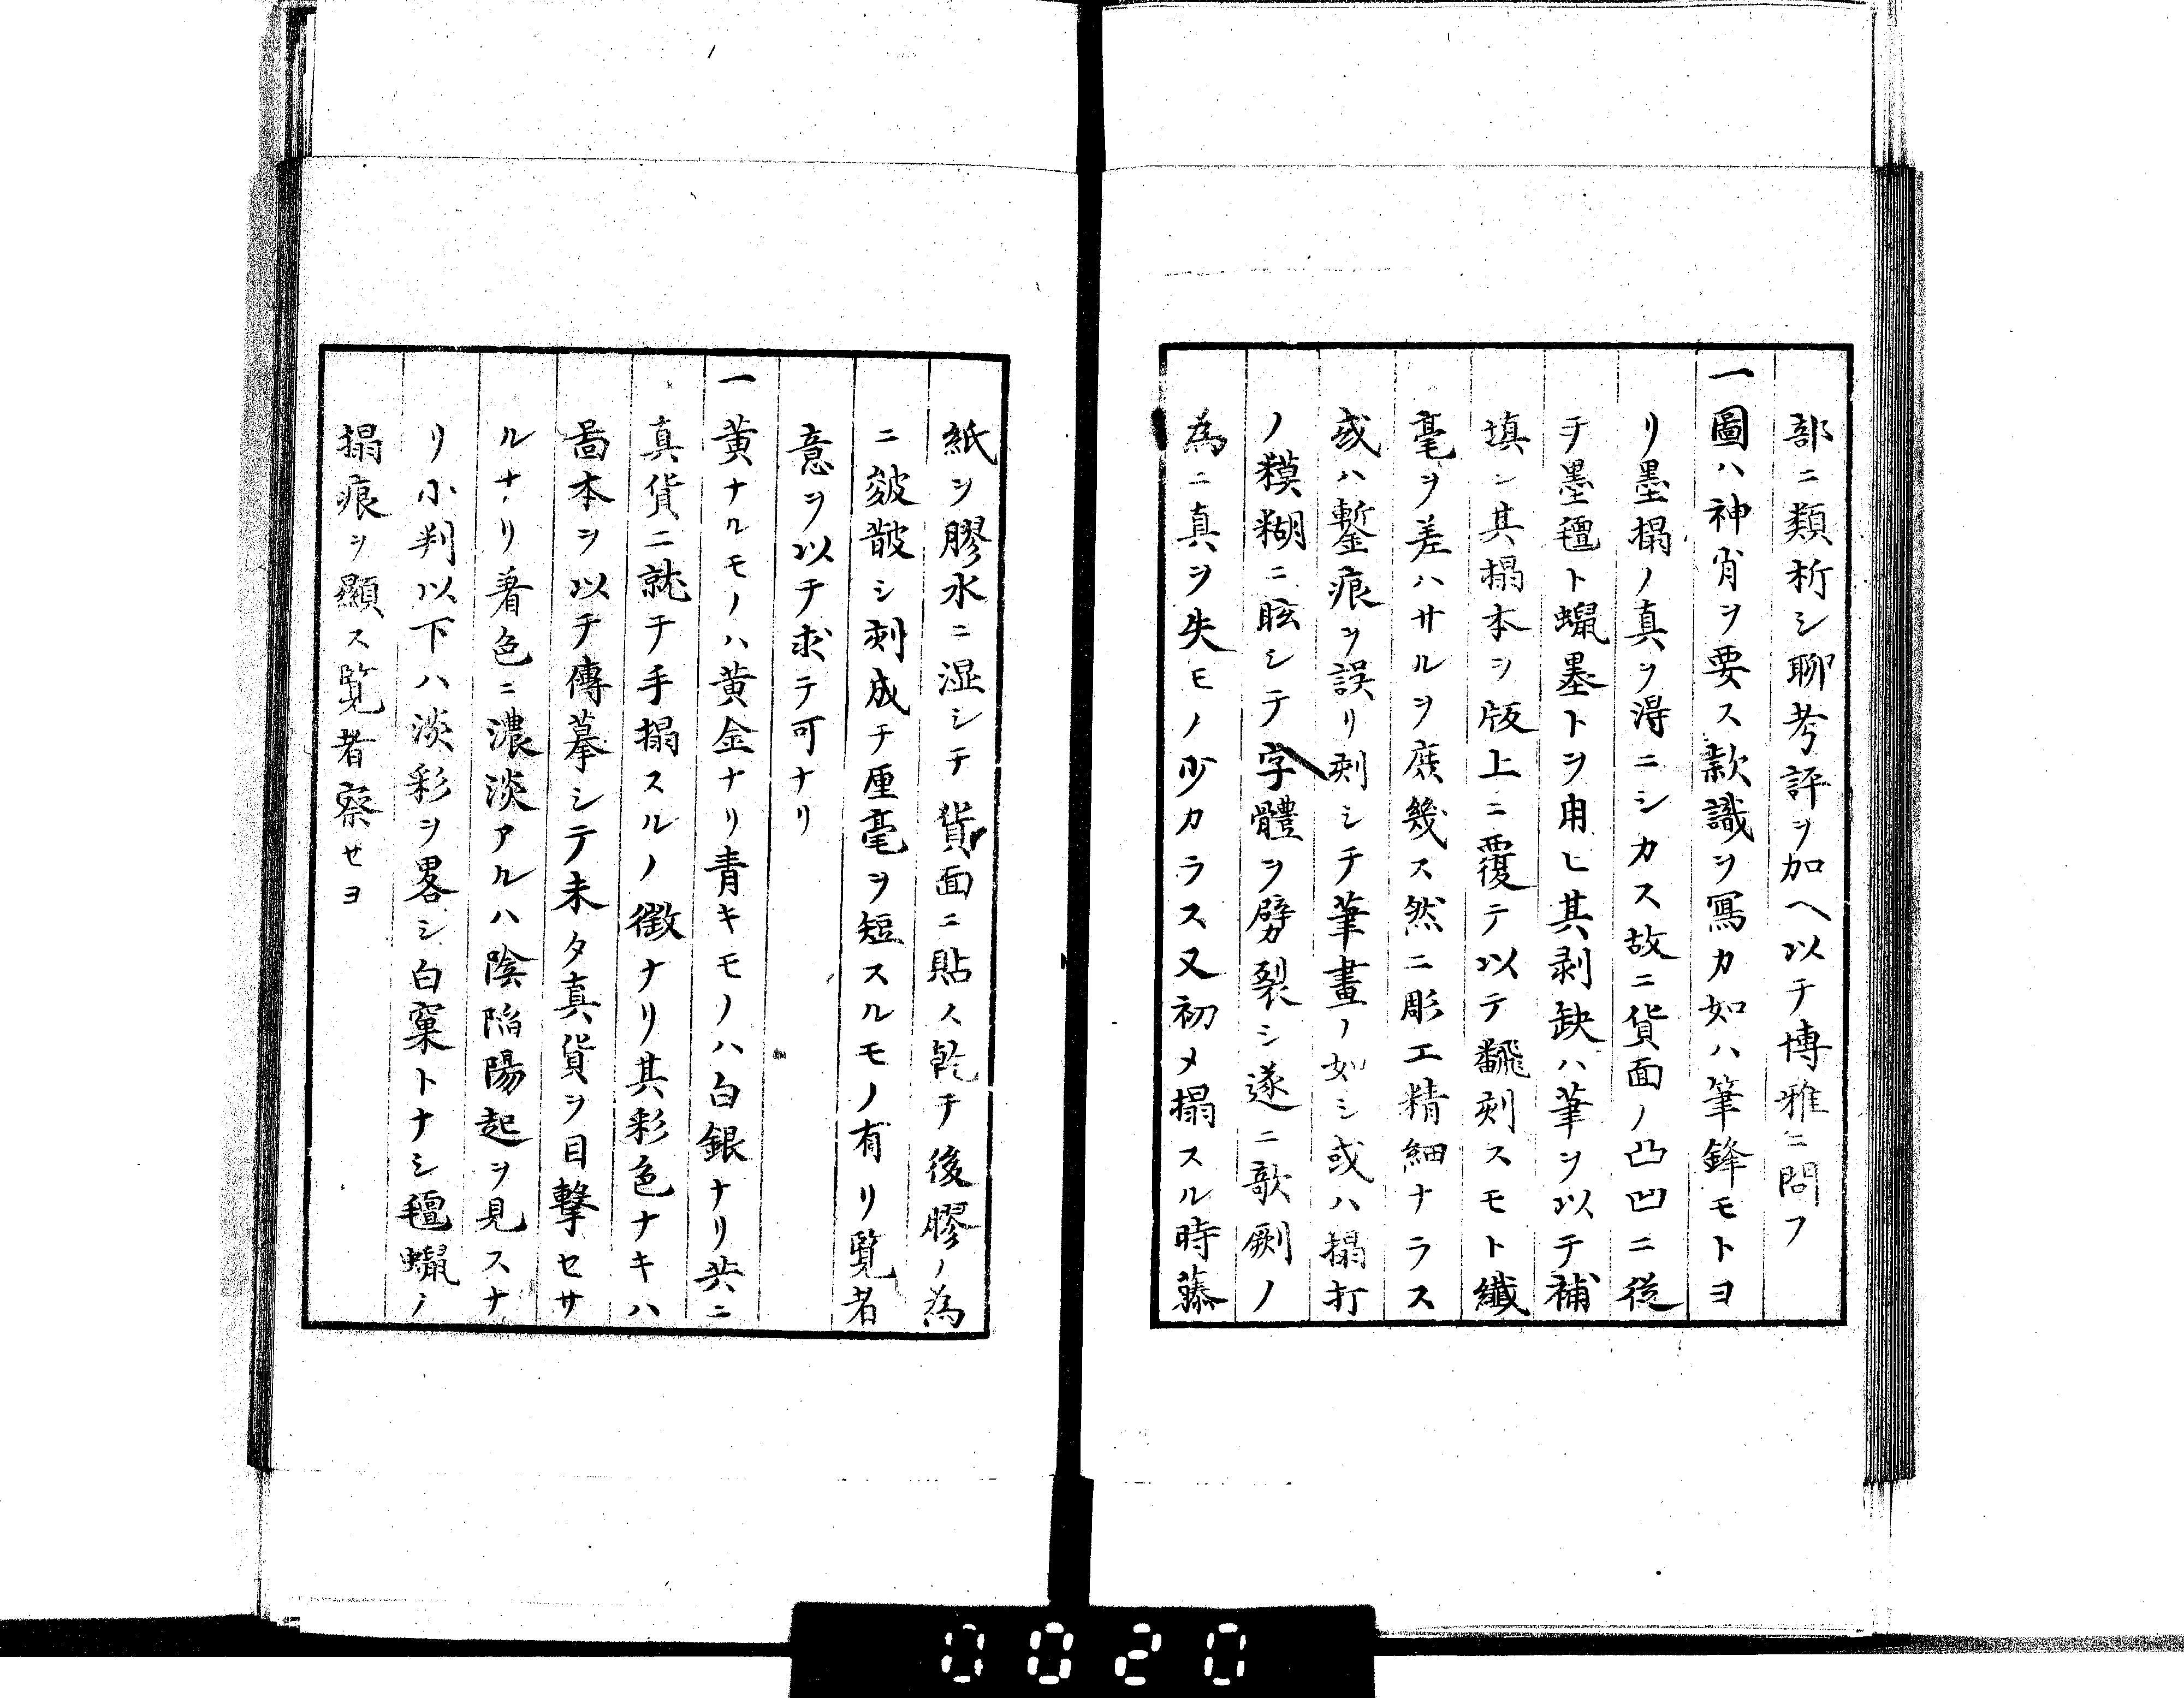 部ニ類析シ聊考評ヲ加ヘ以テ博雅ニ問フ
一圖ハ神肖ヲ要ス款識ヲ寫カ如ハ筆鋒モトヨ
リ墨搨ノ真ヲ得ニシカス故ニ貨面ノ凸凹ニ從
テ墨氊ト蠟墨トヲ用ヒ其剥缺ハ筆ヲ以テ補
填シ其搨本ヲ版上ニ覆テ以テ飜刻スモト纎
毫ヲ差ハサルヲ庶幾ス然ニ彫工精細ナラス
或ハ鏨痕ヲ誤リ刻シテ筆畫ノ如シ或ハ搨打
ノ糢糊ニ眩シテ字體ヲ劈裂シ遂ニ欹劂ノ
為ニ真ヲ失モノ少カラス又初メ搨スル時藤
紙ヲ膠水ニ湿シテ貨面ニ貼ス乾テ後膠ノ為
ニ皴皵シ刻成テ厘毫ヲ短スルモノ有リ覧者
意ヲ以テ求テ可ナリ
一黄ナルモノハ黄金ナリ青キモノハ白銀ナリ共ニ
真貨ニ就テ手搨スルノ徴ナリ其彩色ナキハ
啚本ヲ以テ傳摹シテ未タ真貨ヲ目撃セサ
ルナリ着色ニ濃淡アルハ陰陷陽起ヲ見スナ
リ小判以下ハ淡彩ヲ畧シ白窠トナシ氊蠟ノ
搨痕ヲ顯ス覧者察セヨ
0020